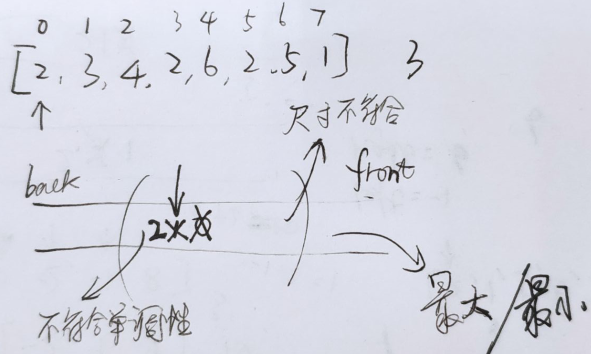 0 1 2 3 4 5 6 7
[2, 3, 4, 2, 6, 2, 5, 1] 3
尺寸不符合
back
front
2
不符合单调性
最大/最小